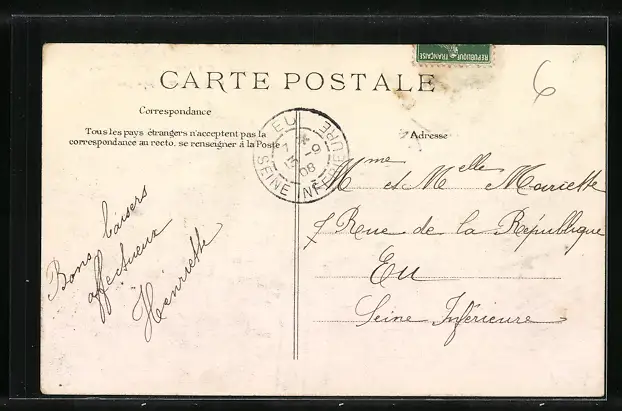 REPUBLIQUE FRANÇAISE
CARTE POSTALE
6
Correspondance
Tous les pays étrangers n'acceptent pas la
correspondance au recto. se renseigner à la Poste
Adresse
EU
SEINE INFERIEURE
08
Bons baisers
affectueux
Henriette
Mme et Melle Mariette
7 Rue de la République
Eu
Seine Inférieure